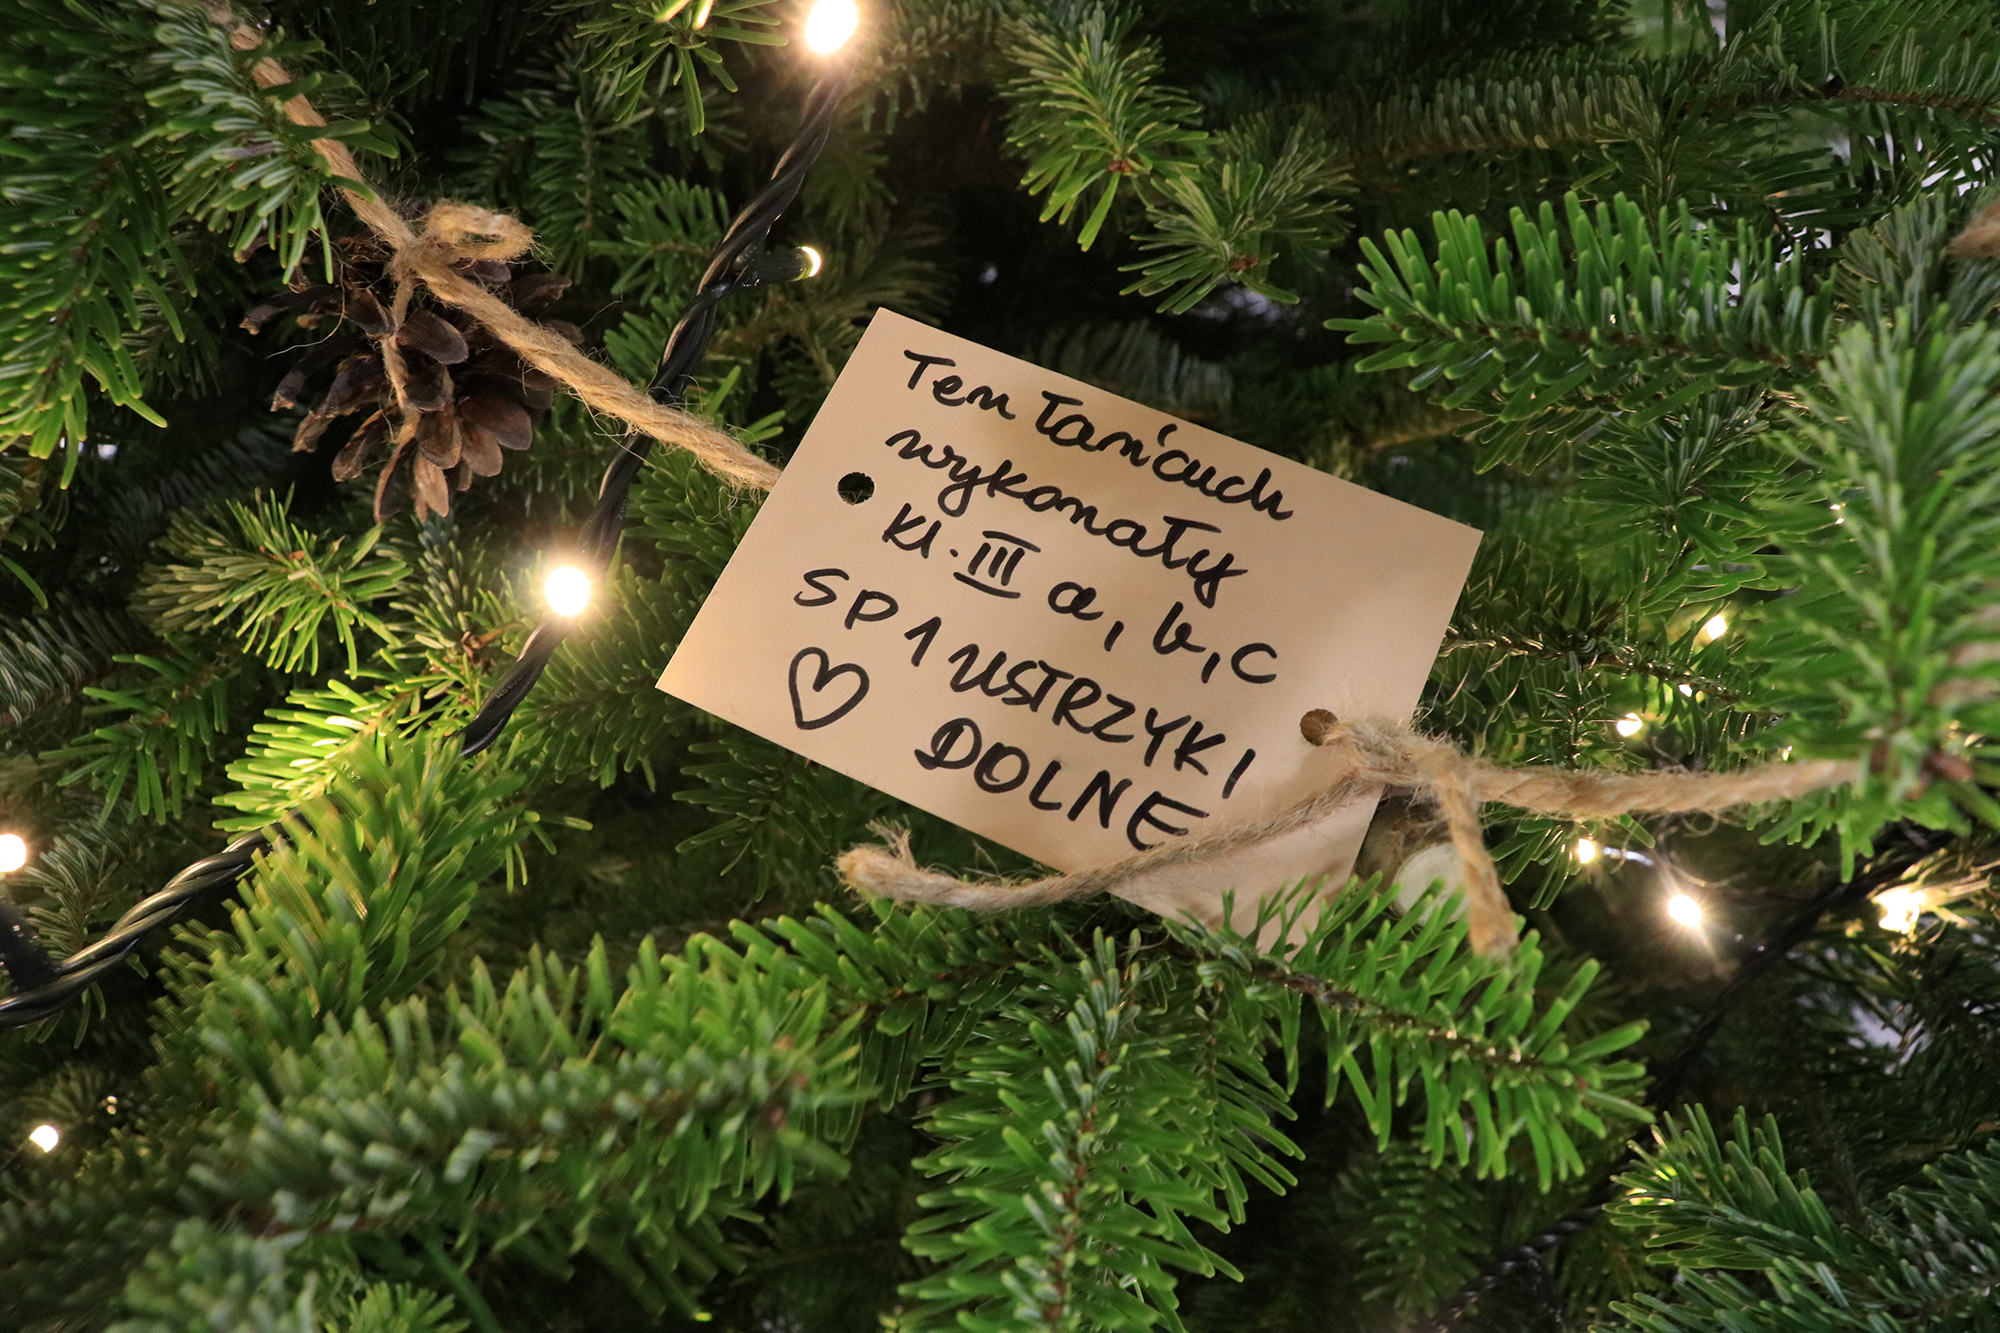 Ten łańcuch
wykonały
kl. III a, b, c
SP 1 USTRZYKI
DOLNE